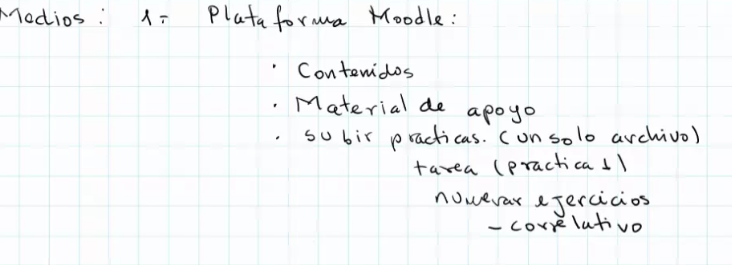 Medios: 1= Plataforma Moodle:
· Contenidos
· Material de apoyo
· subir practicas. (un solo archivo)
tarea (practica 1)
numerar ejercicios
- correlativo